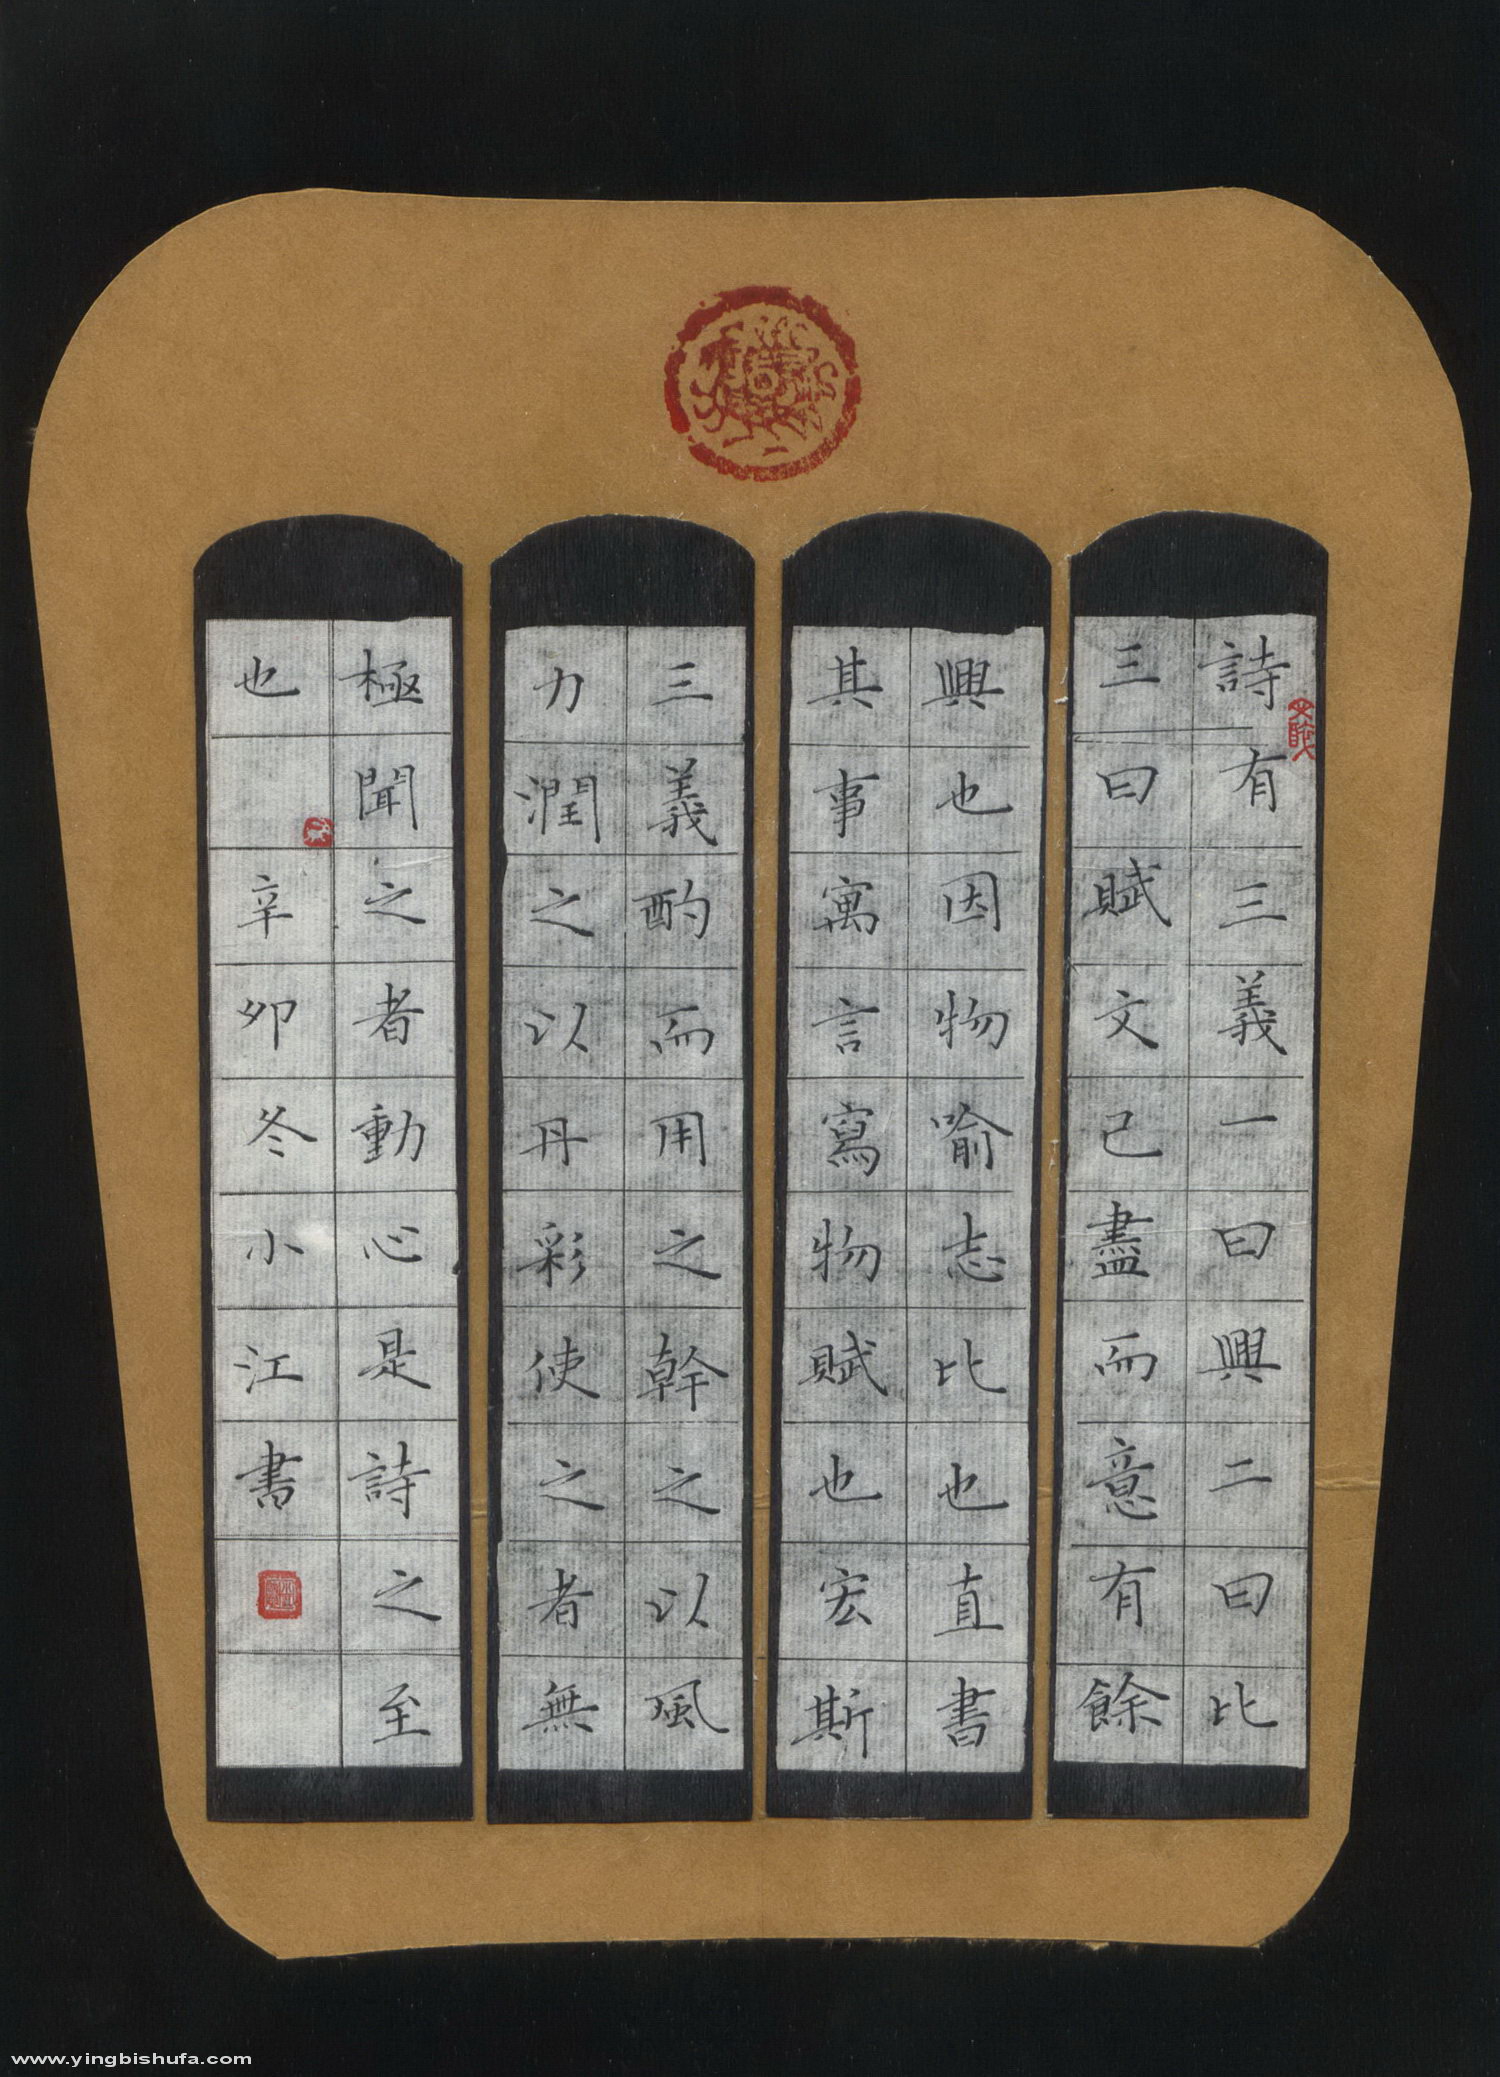 詩有三義一曰興二曰比
三曰賦文已盡而意有餘
興也因物喻志比也直書
其事寓言寫物賦也宏斯
三義酌而用之幹之以風
力潤之以丹彩使之者無
極聞之者動心是詩之至
也
辛卯冬小江書
www.yingbishufa.com